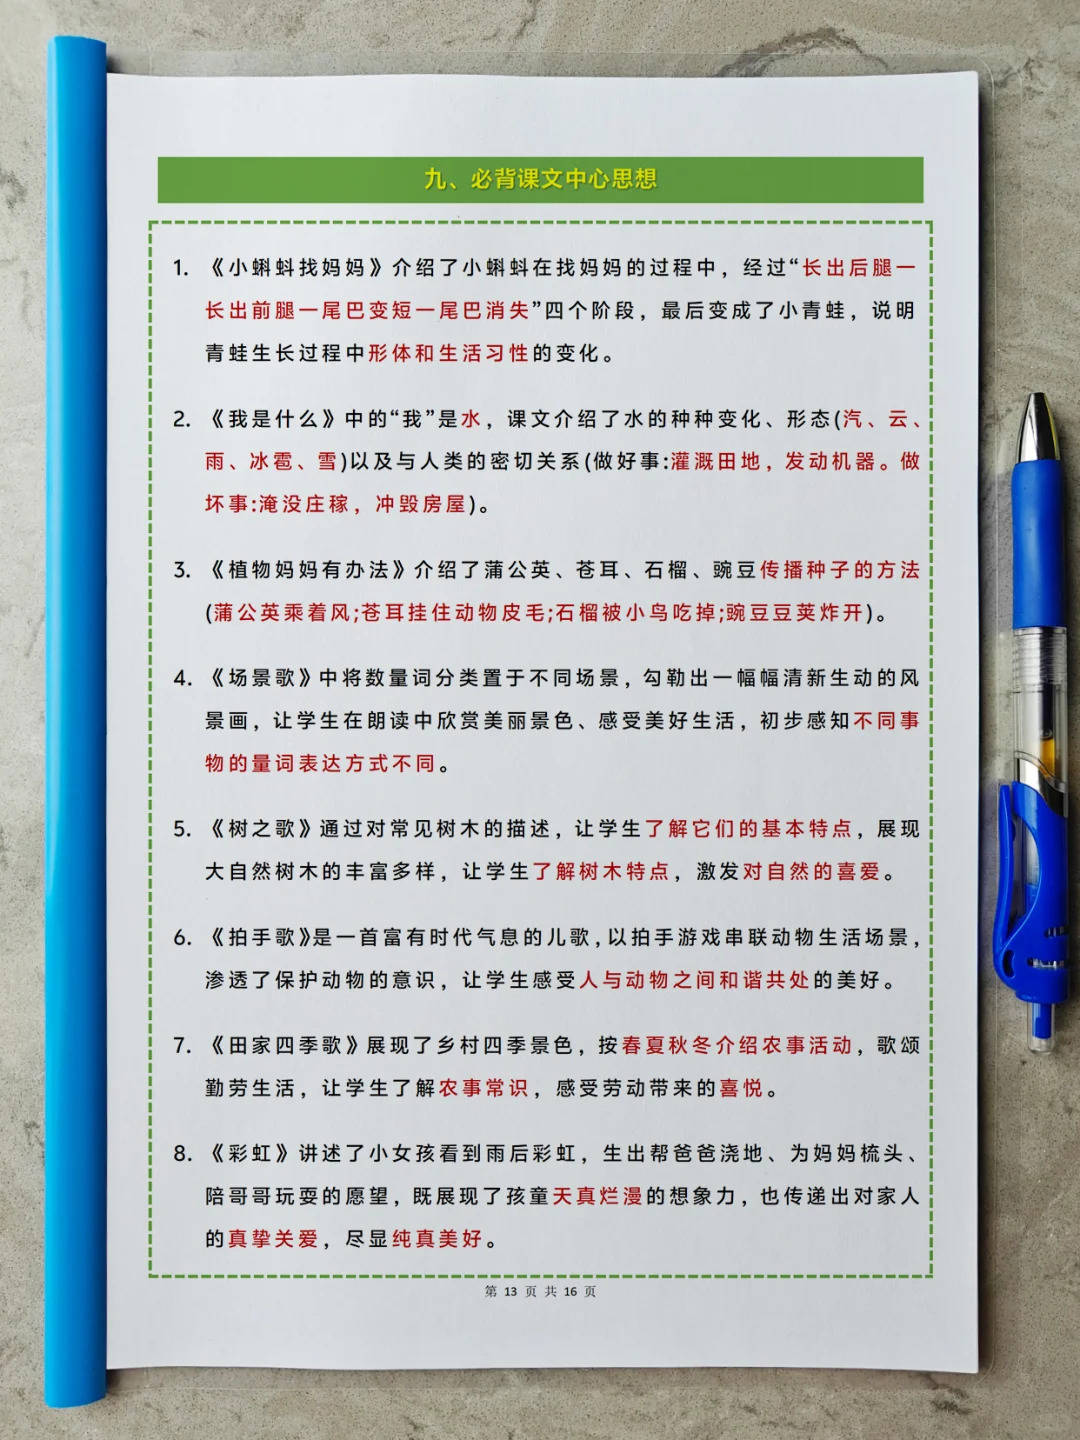 九、必背课文中心思想
1. 《小蝌蚪找妈妈》介绍了小蝌蚪在找妈妈的过程中，经过“长出后腿一
长出前腿一尾巴变短一尾巴消失”四个阶段，最后变成了小青蛙，说明
青蛙生长过程中形体和生活习性的变化。
2. 《我是什么》中的“我”是水，课文介绍了水的种种变化、形态(汽、云、
雨、冰雹、雪)以及与人类的密切关系(做好事:灌溉田地，发动机器。做
坏事:淹没庄稼，冲毁房屋)。
3. 《植物妈妈有办法》介绍了蒲公英、苍耳、石榴、豌豆传播种子的方法
(蒲公英乘着风;苍耳挂住动物皮毛;石榴被小鸟吃掉;豌豆豆荚炸开)。
4. 《场景歌》中将数量词分类置于不同场景，勾勒出一幅幅清新生动的风
景画，让学生在朗读中欣赏美丽景色、感受美好生活，初步感知不同事
物的量词表达方式不同。
5. 《树之歌》通过对常见树木的描述，让学生了解它们的基本特点，展现
大自然树木的丰富多样，让学生了解树木特点，激发对自然的喜爱。
6. 《拍手歌》是一首富有时代气息的儿歌，以拍手游戏串联动物生活场景，
渗透了保护动物的意识，让学生感受人与动物之间和谐共处的美好。
7. 《田家四季歌》展现了乡村四季景色，按春夏秋冬介绍农事活动，歌颂
勤劳生活，让学生了解农事常识，感受劳动带来的喜悦。
8. 《彩虹》讲述了小女孩看到雨后彩虹，生出帮爸爸浇地、为妈妈梳头、
陪哥哥玩耍的愿望，既展现了孩童天真烂漫的想象力，也传递出对家人
的真挚关爱，尽显纯真美好。
第 13 页 共 16 页